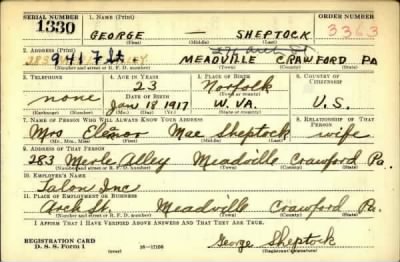 SERIAL NUMBER 1. NAME (Print) ORDER NUMBER
1330 GEORGE — SHEPTOCK 3363
(First) (Middle) (Last)
2. ADDRESS (Print)
941 7 St MEADVILLE CRAWFORD PA
(Number and street or R. F. D. number) (Town) (County) (State)
3. TELEPHONE 4. AGE IN YEARS 5. PLACE OF BIRTH 6. COUNTRY OF CITIZENSHIP
23 Norfolk
none DATE OF BIRTH (Town or county)
Jan 18 1917 W. VA. U. S.
(Exchange) (Number) (Mo.) (Day) (Yr.) (State or country)
7. NAME OF PERSON WHO WILL ALWAYS KNOW YOUR ADDRESS 8. RELATIONSHIP OF THAT PERSON
Mrs Elenor Mae Sheptock wife
(Mr., Mrs., Miss) (First) (Middle) (Last)
9. ADDRESS OF THAT PERSON
283 Merle Alley Meadville Crawford Pa.
(Number and street or R. F. D. number) (Town) (County) (State)
10. EMPLOYER'S NAME
Talon Inc
11. PLACE OF EMPLOYMENT OR BUSINESS
Arch St. Meadville Crawford Pa.
(Number and street or R. F. D. number) (Town) (County) (State)
I AFFIRM THAT I HAVE VERIFIED ABOVE ANSWERS AND THAT THEY ARE TRUE.
REGISTRATION CARD
D. S. S. Form 1 (over) 16-17105 George Sheptock